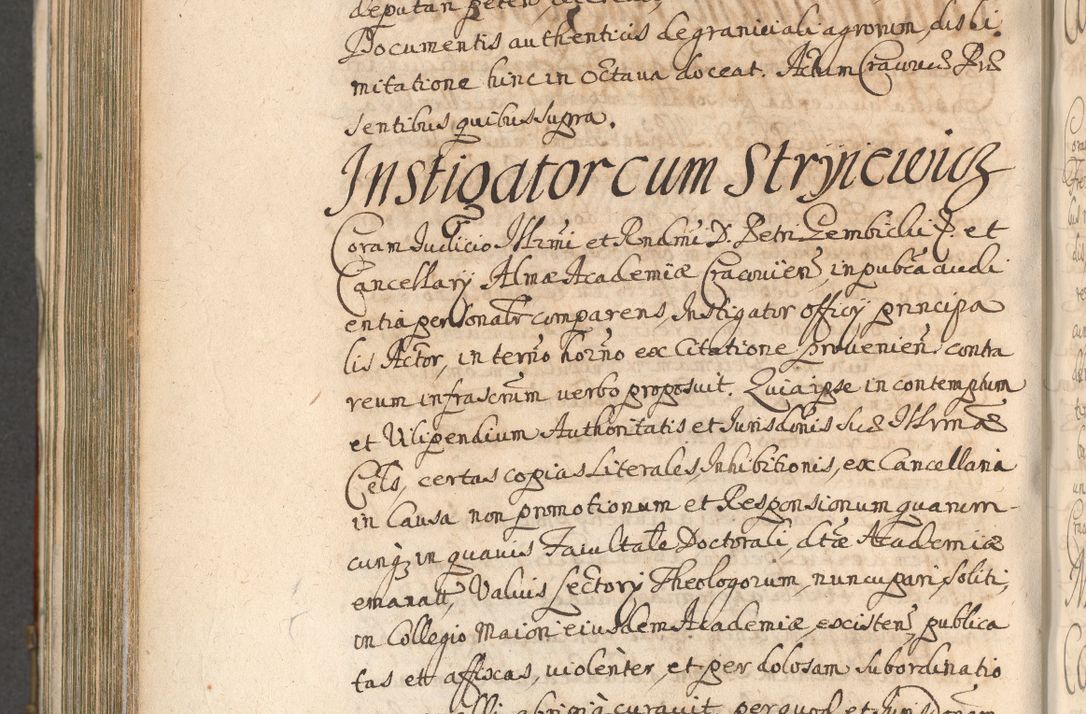 Documentis authenticis de graniciali agrorum, disli
mitatione hinc in Octava doceat. Actum Cracoviæ Præ
sentibus quibus supra.
Instigator cum Stryiewicz
Coram Iudicio Illrmi et Rndmi D. Petri Gembicki E. et
Cancellarÿ Almæ Academiæ Cracovien, in publca audi
entia personalr comparens, Instigator officÿ principa
lis Actor, in termo horno ex Citatione provenien, contra
reum infrascrium verbo proposuit. Quia ipse in contemptum
et Vilipendium Authoritatis et Iurisdonis suæ Illrmæ
Cels, certas copias Literales, Inhibitionis, ex Cancellaria
in Causa non promotionum et Responsionum quarum-
cunq; in quavis Facultate Doctorali, dtæ Academiæ
emanat, Valvis Lectorÿ Theologorum, nuncupari, soliti,
in Collegio Maiori eiusdem Academiæ, existen, publica
tas ett affixas, violenter, et per dolosam subordinatio